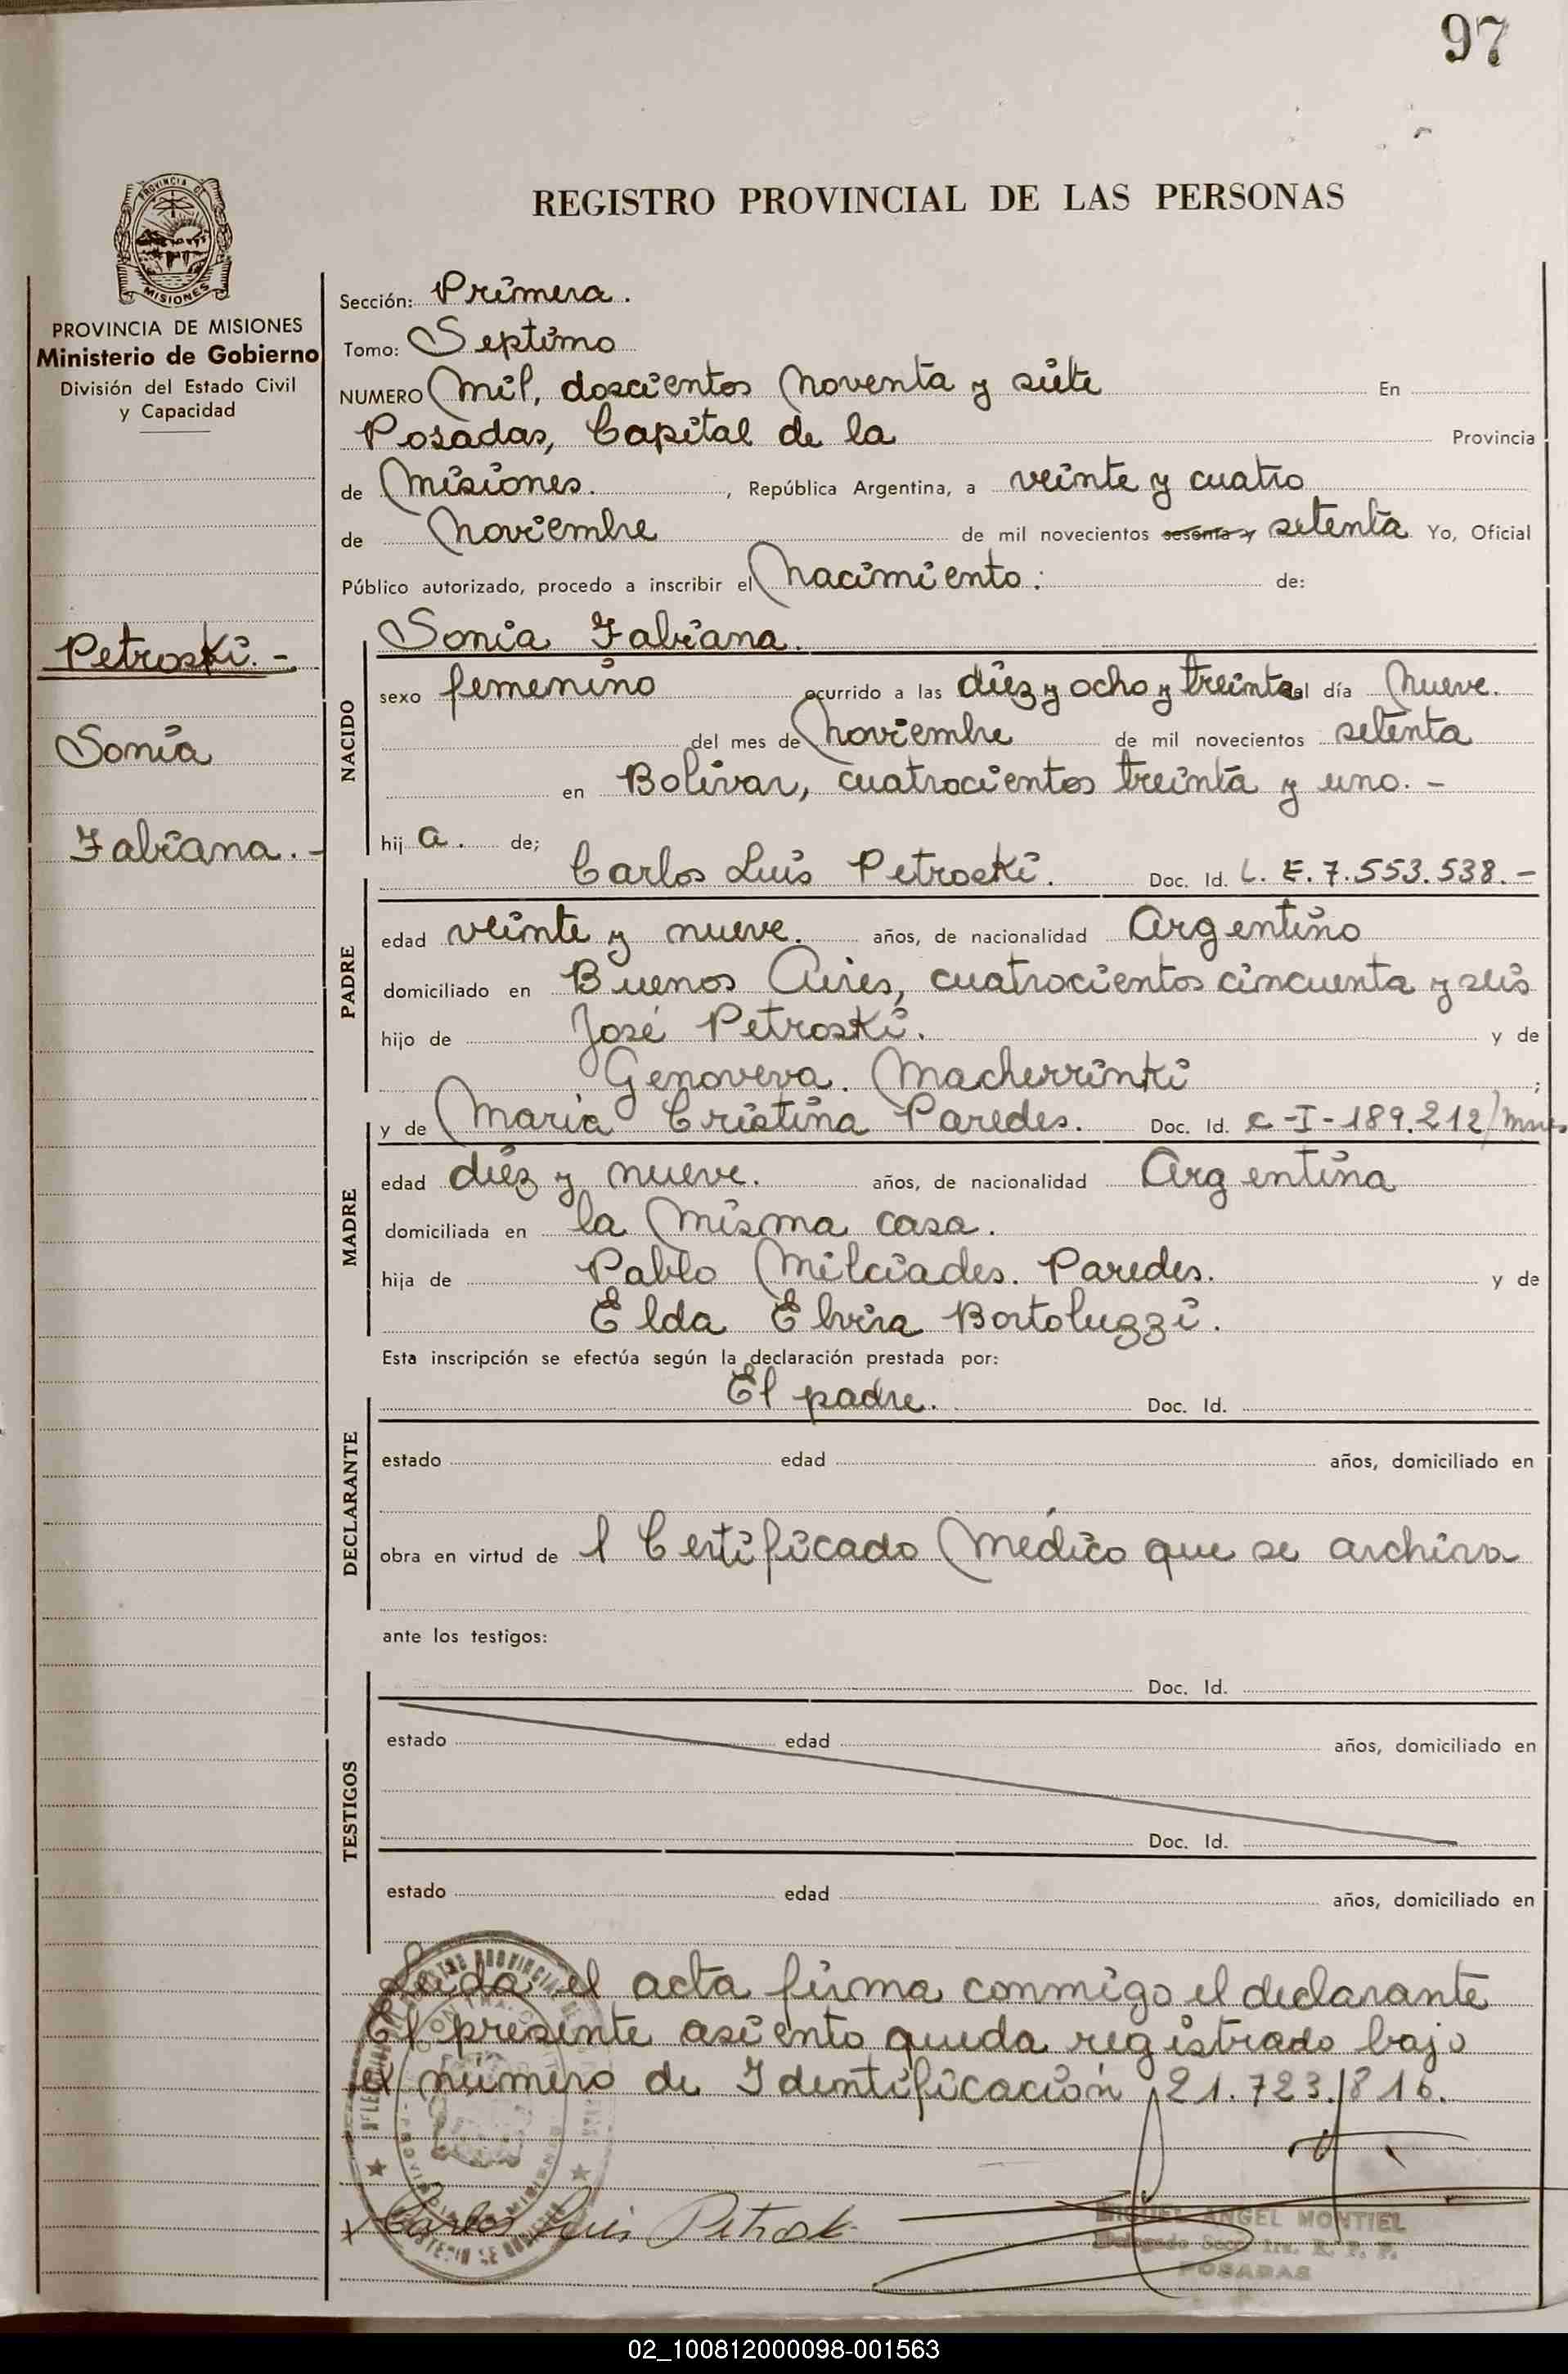 97
PROVINCIA DE
MISIONES
REGISTRO PROVINCIAL DE LAS PERSONAS
PROVINCIA DE MISIONES
Ministerio de Gobierno
División del Estado Civil
y Capacidad
Petroski. -
Sonia
Fabiana. -
Sección: Primera.
Tomo: Septimo
NUMERO Mil, doscientos Noventa y siete En
Posadas, Capital de la Provincia
de Misiones. , República Argentina, a veinte y cuatro
de Noviembre de mil novecientos sesenta y setenta Yo, Oficial
Público autorizado, procedo a inscribir el Nacimiento: de:
Sonia Fabiana.
NACIDO
sexo femenino ocurrido a las diez y ocho y treinta al día Nueve.
del mes de Noviembre de mil novecientos setenta
en Bolívar, cuatrocientos treinta y uno. -
hij a. de;
Carlos Luis Petroski. Doc. Id. L. E. 7.553.538. -
PADRE
edad veinte y nueve. años, de nacionalidad Argentino
domiciliado en Buenos Aires, cuatrocientos cincuenta y seis
hijo de José Petroski. y de
Genoveva. Macherrinki ;
y de María Cristina Paredes. Doc. Id. C-I-189.212/Mnes
MADRE
edad diez y nueve. años, de nacionalidad Argentina
domiciliada en la Misma casa.
hija de Pablo Milciades. Paredes. y de
Elda Elvira Bortoluzzi.
Esta inscripción se efectúa según la declaración prestada por:
El padre. Doc. Id.
DECLARANTE
estado edad años, domiciliado en
obra en virtud de l Certificado Médico que se archiva
ante los testigos:
TESTIGOS
Doc. Id.
estado edad años, domiciliado en
Doc. Id.
estado edad años, domiciliado en
Leida el acta firma conmigo el declarante
El presente asiento queda registrado bajo
el número de Identificación 21.723.816.
x Carlos Luis Petroski
MIGUEL ANGEL MONTIEL
Delegado Secc. 1ra. R. P. P.
POSADAS
02_100812000098-001563